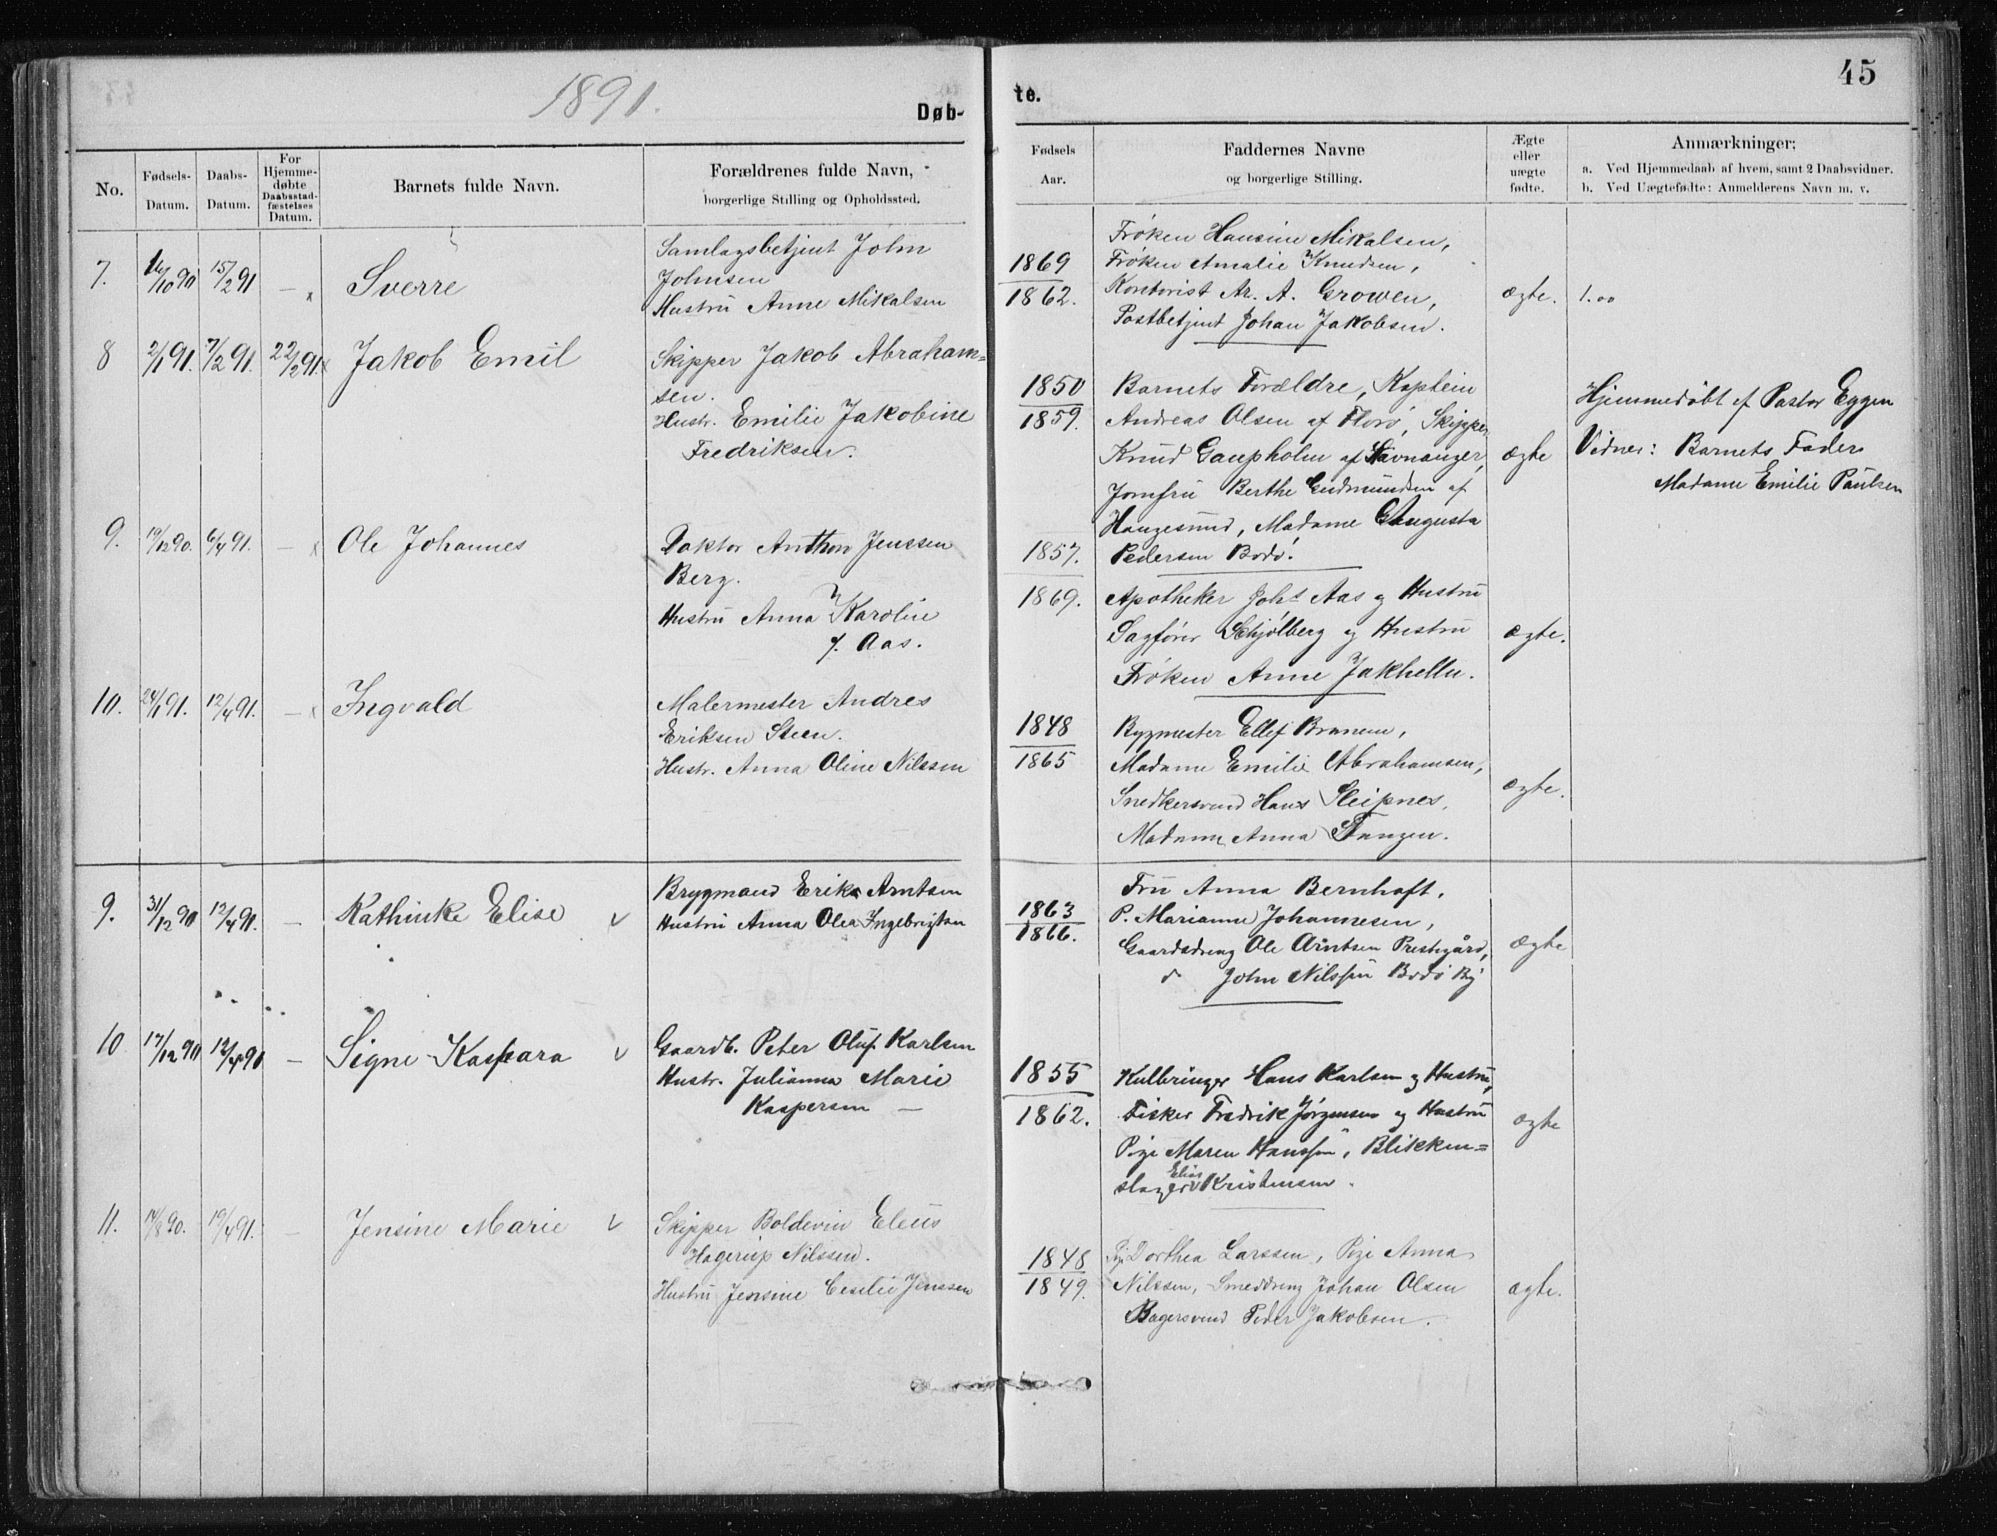 1891.
45
Døb-
te.
No.
Fødsels-
Datum.
Daabs-
Datum.
For
Hjemme-
døbte
Daabsstad-
fæstelses
Datum.
Barnets fulde Navn.
Forældrenes fulde Navn,
borgerlige Stilling og Opholdssted.
Fødsels
Aar.
Faddernes Navne
og borgerlige Stilling.
Ægte
eller
uægte
fødte.
Anmærkninger;
a. Ved Hjemmedaab af hvem, samt 2 Daabsvidner.
b. Ved Uægtefødte: Anmelderens Navn m. v.
7. 16/10 90 15/2 91 — Sverre
Samlagsbetjent John
Johnsen
Hustru Anne Mikalsen
1869
1862.
Frøken Hansine Mikalsen,
Frøken Amalie Knudsen,
Kontorist Ar. A. Growen,
Postbetjent Johan Jakobsen.
ægte. 1.00
8 2/1 91. 7/2 91. 22/2 91. Jakob Emil
Skipper Jakob Abraham=
sen.
Hustr. Emilie Jakobine
Fredriksen.
1850
1859.
Barnets Forældre, Kaptein
Andreas Olsen af Florø, Skipper
Knud Gaupholm af Hävnanger,
Jomfru Berthe Gudmundsen af
Haugesund, Madame Augusta
Pedersen Bodø.
ægte
Hjemmedøbt af Pastor Eggen
Vidner: Barnets Fader
Madame Emilie Paulsen
9. 19/12 90. 6/4 91. — Ole Johannes
Doktor Anthon Jenssen
Berg.
Hustru Anna Karoline
f. Aas.
1857.
1869.
Apotheker Johs Aas og Hustru
Sagfører Schjølberg og Hustru
Frøken Anne Jakhelln.
ægte.
10. 24/1 91. 12/4 91. — Ingvald
Malermester Andres
Eriksen Steen.
Hustr. Anna Oline Nilssen
1848
1865
Bygmester Ellef
Madame Emilie Abrahamsen,
Snedkersvend Hans Sleipnes,
Madame Anna Tangen.
ægte.
9. 31/12 90 12/4 91. — Kathinke Elise v
Brygmand Erik Arntsen
Hustru Anna Olea Ingebrigtsen
1863
1866.
Fru Anna Bernhoft,
P. Marianne Johannesen,
Gaardsdreng Ole Arntsen Prestegård,
John Nilssen Bodø By
ægte
10 17/12 90 12/4 90 — Signe Kaspara v
Gaardb. Peter Oluf Karlsen
Hustr. Julianna Marie
Kaspersen —
1855
1862.
Kulbringer Hans Karlsen og Hustru,
Fisker Fredrik Jørgensen og Hustru
Pige Maren Hanssen, Blikken=
slager Elias Kristensen.
ægte
11. 14/8 90. 19/4 91. — Jensine Marie v
Skipper Boldevin Eleus
Hagerup Nilssen.
Hustru Jensine Cesilie Jenssen
1848
1849.
Pige Dorthea Larssen, Pige Anna
Nilssen, Smeddreng Johan Olsen
Bagersvend Peder Jakobsen.
ægte.